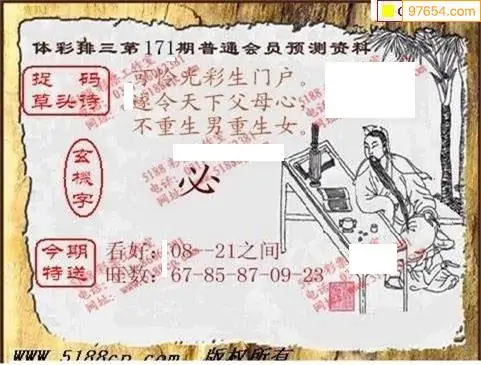 97654.com
体彩排三第171期普通会员预测资料
捉码
草头诗
可怜光彩生门户。
遂令天下父母心,
不重生男重生女。
玄機字
必
今期
特送
看好:08--21之间
旺数:67-85-87-09-23
www.5188cp.com 版权所有